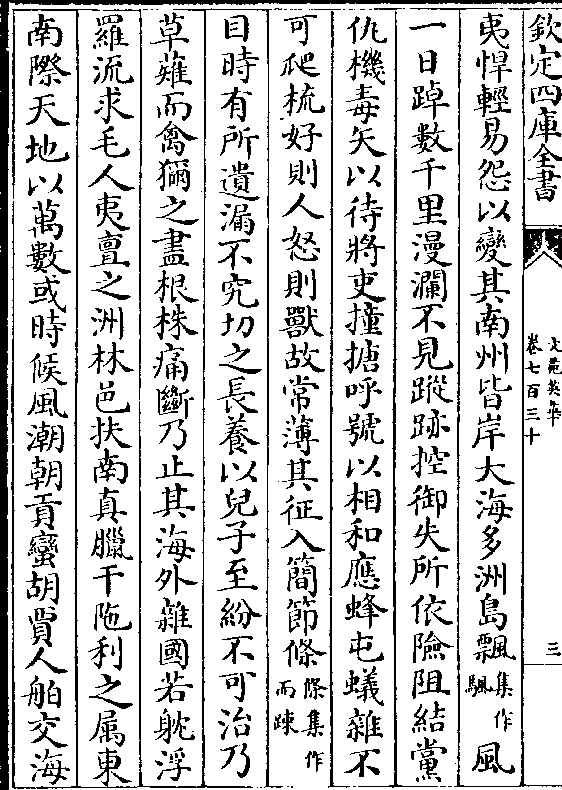 欽定四庫全書
文苑英華
卷七百三十
三
夷悍輕易怨以變其南州皆岸大海多洲島飄集作颿風
一日踔數千里漫瀾不見蹤跡控御失所依險阻結黨
仇機毒矢以待將吏撞搪呼號以相和應蜂屯蟻雜不
可爬梳好則人怒則獸故常薄其征入簡節條條集作而踈
目時有所遺漏不究切之長養以兒子至紛不可治乃
草薙而禽獮之盡根株痛斷乃止其海外雜國若躭浮
羅流求毛人夷亶之洲林邑扶南真臘干陁利之属東
南際天地以萬數或時候風潮朝貢蠻胡賈人舶交海